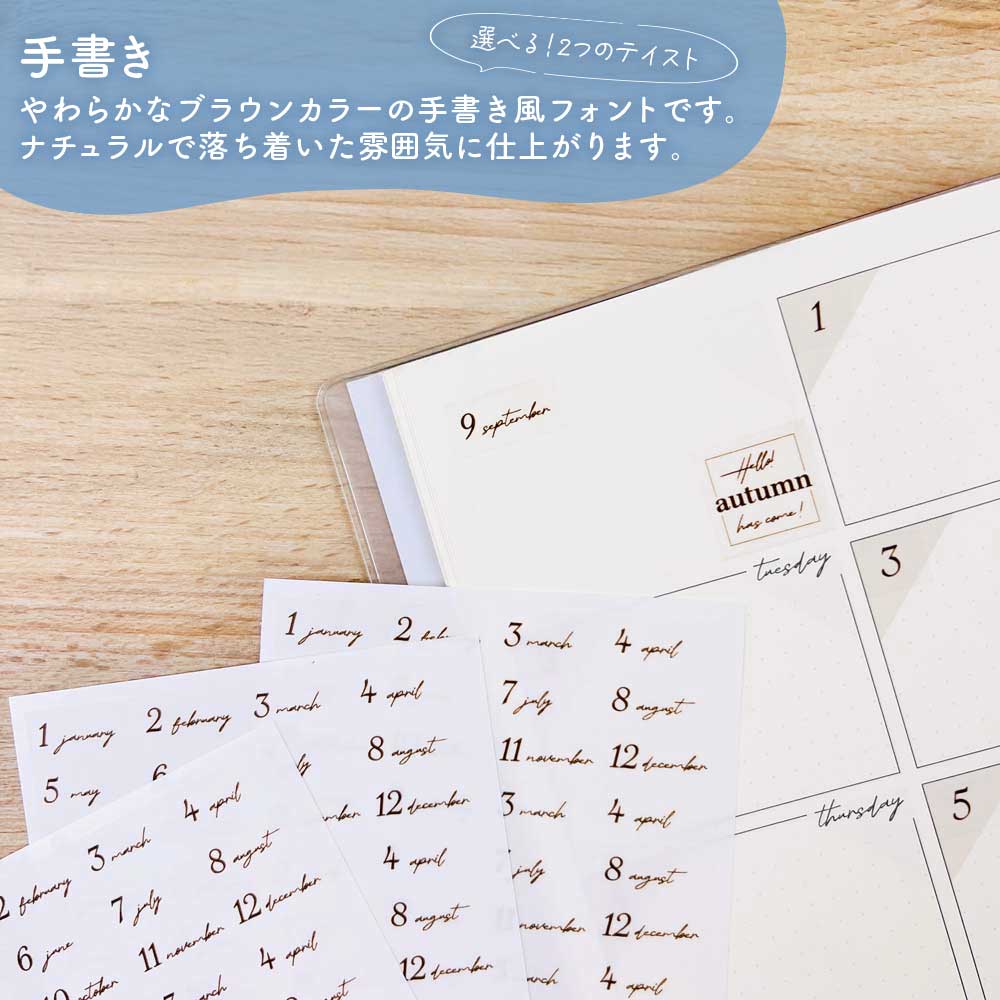 手書き
選べる！2つのテイスト
やわらかなブラウンカラーの手書き風フォントです。
ナチュラルで落ち着いた雰囲気に仕上がります。
1
9 september
Hello!
autumn
has come!
tuesday
3
thursday
5
1 january 2 3 march 4 april
7 july 8 august
11 november 12 december
3 march 4 april
july 8 august
november 12 december
march 4 april
1 january 2 february 3 march 4 april
5 may 6 8 august
12 december
4 april
8 august
12 december
2 february 3 march 4 april
6 june 7 july 8 august
10 october 11 november 12 december
4 april